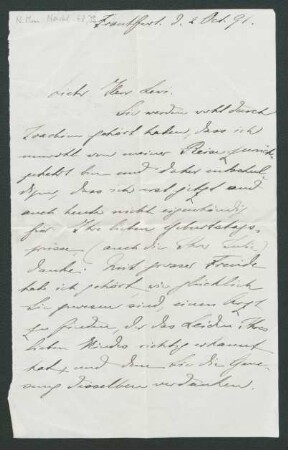 Frankfurt. d. 2 Oct. 91.
Lieber Herr Levi.
Sie werden wohl durch
Joachim gehört haben, dass ich
unwohl von meiner Reise zurück-
gekehrt bin und daher entschul-
digen, dass ich erst jetzt und
auch heute nicht eigenhändig
für Ihre lieben Geburtstags-
grüsse (auch die Ihrer
danke. Mit grosser Freude
habe ich gehört wie glücklich
Sie gewesen sind einen Arzt
zu finden, der das Leiden Ihres
lieben Kindes richtig erkannt
hat, und dem Sie die Gene-
sung desselben verdanken.